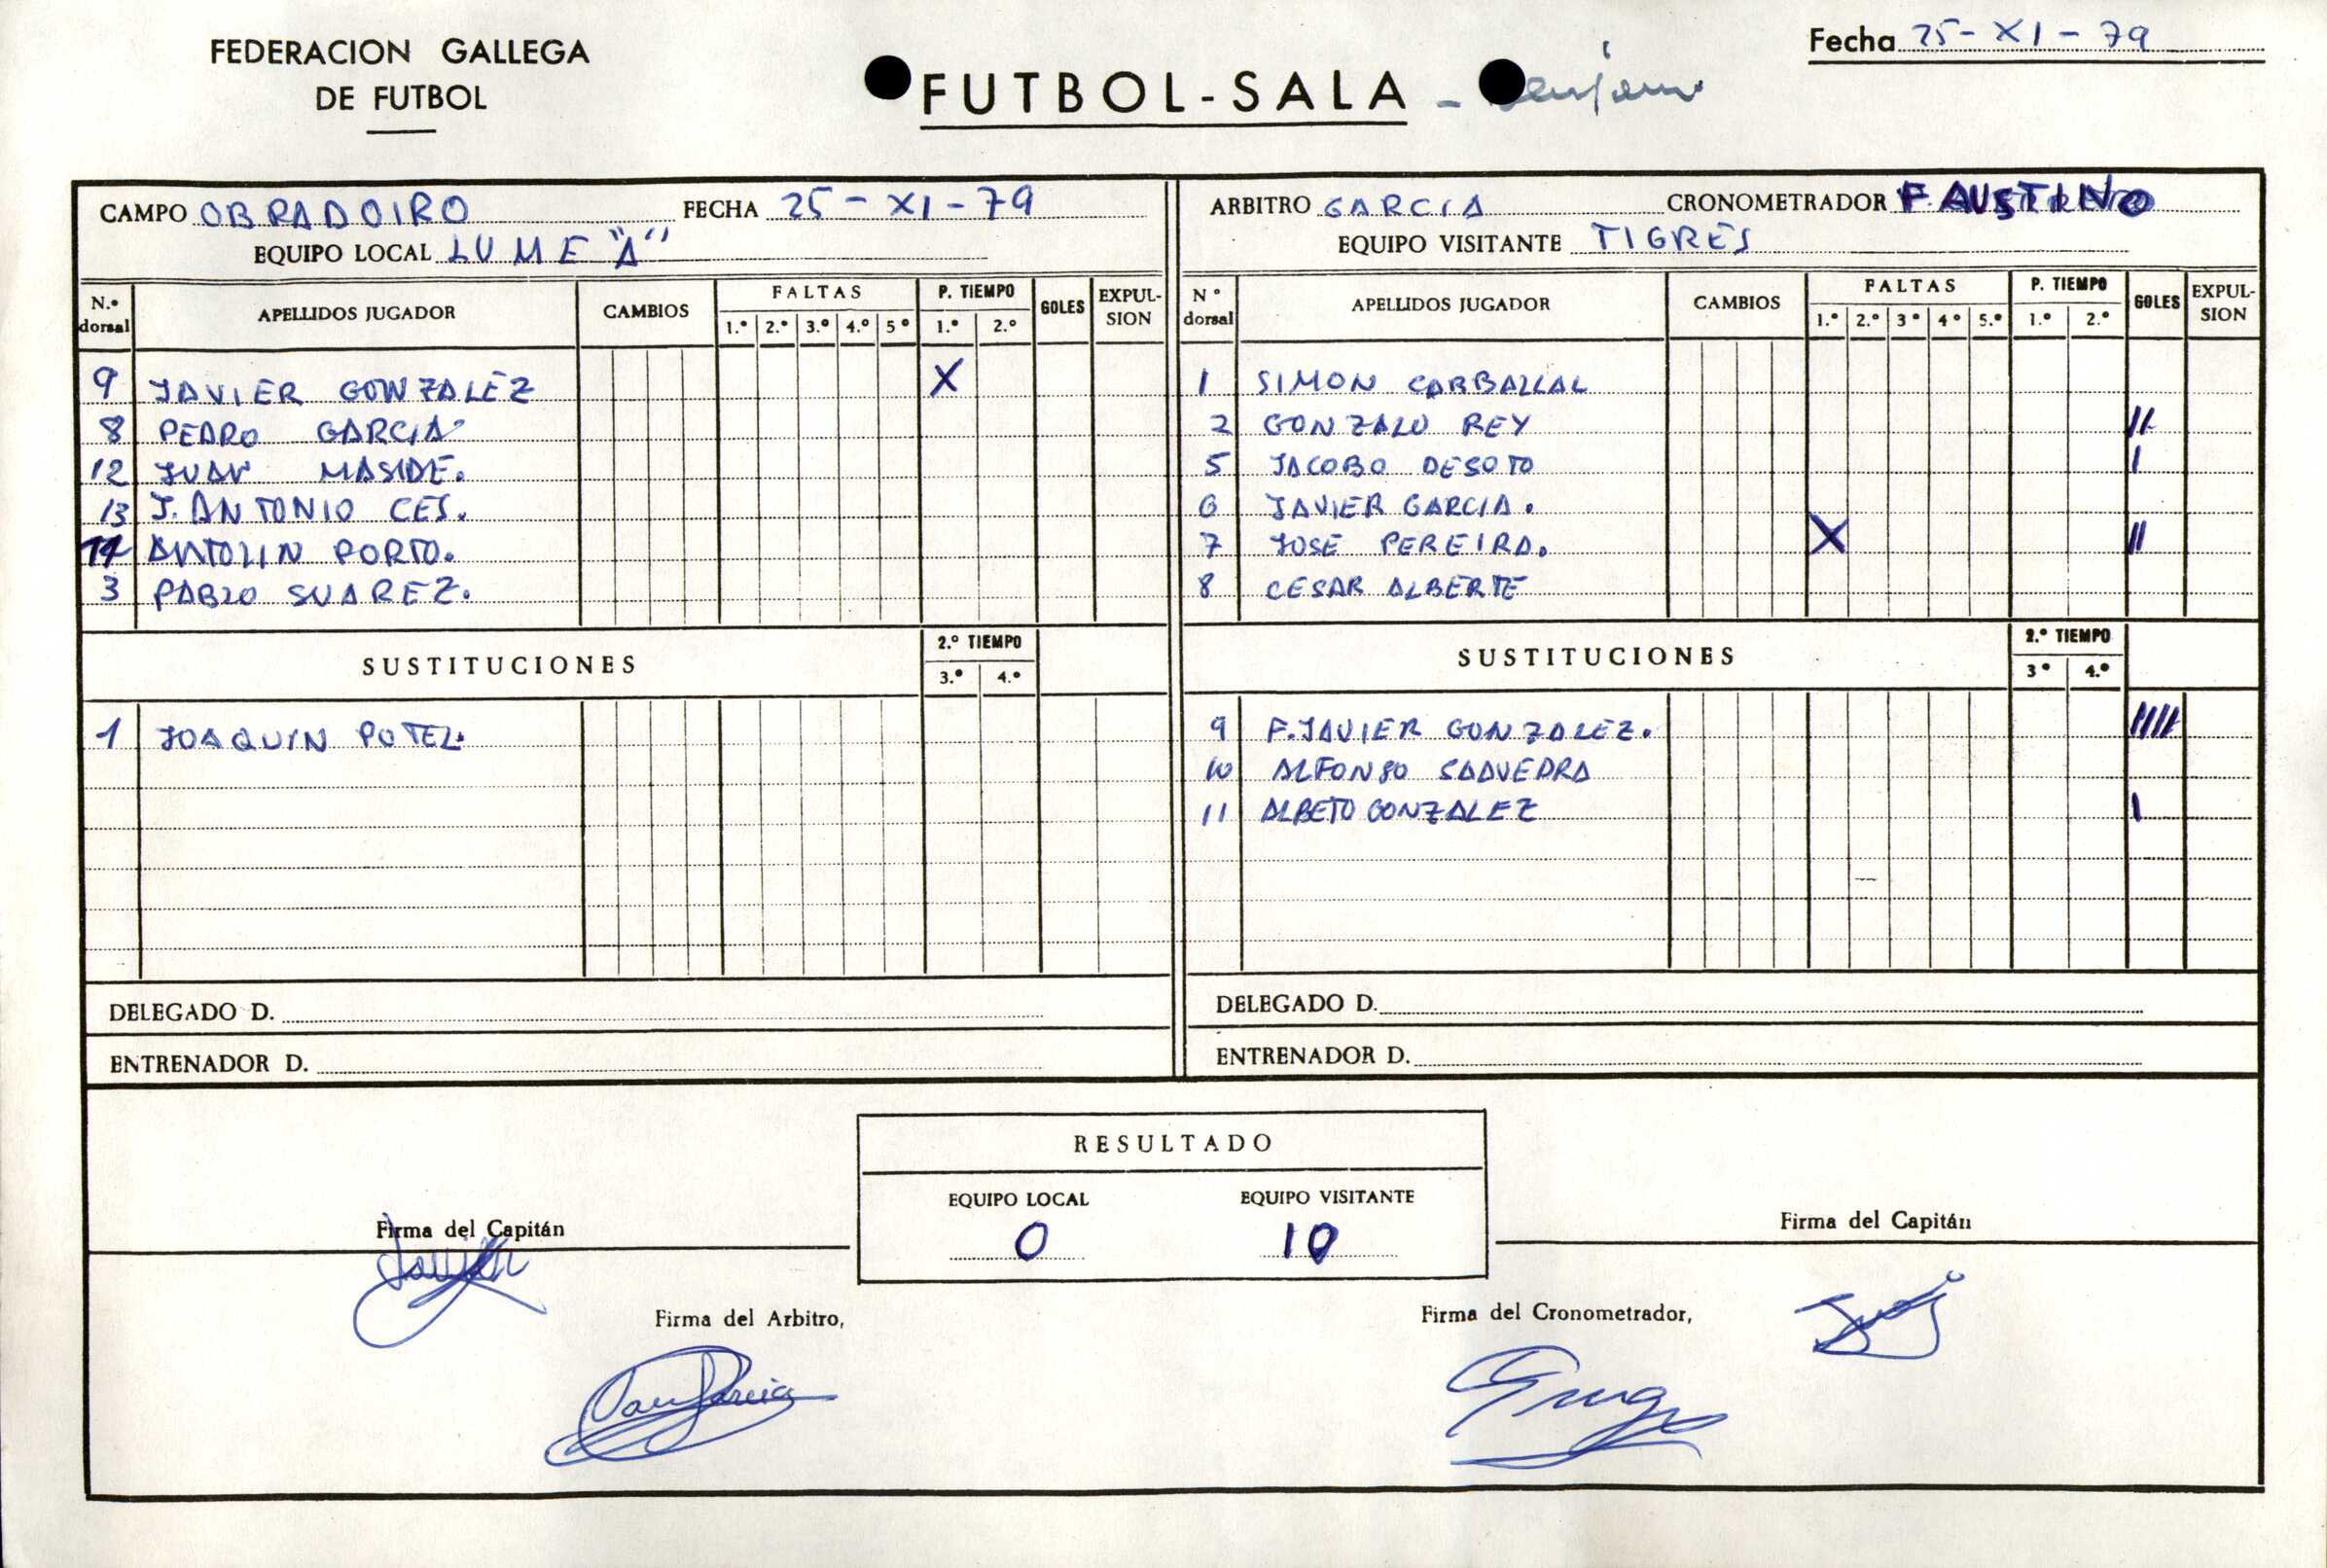 FEDERACION GALLEGA
DE FUTBOL
FUTBOL-SALA -
Fecha 25-XI-79
CAMPO OBRADOIRO FECHA 25-XI-79
EQUIPO LOCAL LUME "A"
ARBITRO GARCIA CRONOMETRADOR FAUSTINO
EQUIPO VISITANTE TIGRES
N.º dorsal APELLIDOS JUGADOR CAMBIOS FALTAS 1.º 2.º 3.º 4.º 5º P. TIEMPO 1.º 2.º GOLES EXPULSION
9 JAVIER GONZALEZ X
8 PEDRO GARCIA
12 JUAN MASIDE.
13 J. ANTONIO CES.
14 ANTOLIN PORTO.
3 PABLO SUAREZ.
SUSTITUCIONES 2.º TIEMPO 3.º 4.º
1 JOAQUIN POTEL.
DELEGADO D.
ENTRENADOR D.
Nº dorsal APELLIDOS JUGADOR CAMBIOS FALTAS 1.º 2.º 3º 4º 5.º P. TIEMPO 1.º 2.º GOLES EXPULSION
1 SIMON CARBALLAL
2 GONZALO REY II
5 JACOBO DESOTO I
6 JAVIER GARCIA.
7 JOSE PEREIRA. X II
8 CESAR ALBERTE
SUSTITUCIONES 2.º TIEMPO 3º 4.º
9 F. JAVIER GONZALEZ. IIII
10 ALFONSO SAAVEDRA
11 ALBETO GONZALEZ I
DELEGADO D.
ENTRENADOR D.
RESULTADO
EQUIPO LOCAL EQUIPO VISITANTE
0 10
Firma del Capitán
Firma del Capitán
Firma del Arbitro,
Firma del Cronometrador,